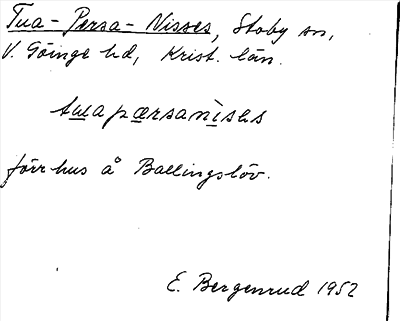 Tua-Persa-Nisses, Stoby sn,
V. Göinge hd, Krist. län.
tuapærsanisəs
förr hus å Ballingslöv.
E. Bergenrud 1952